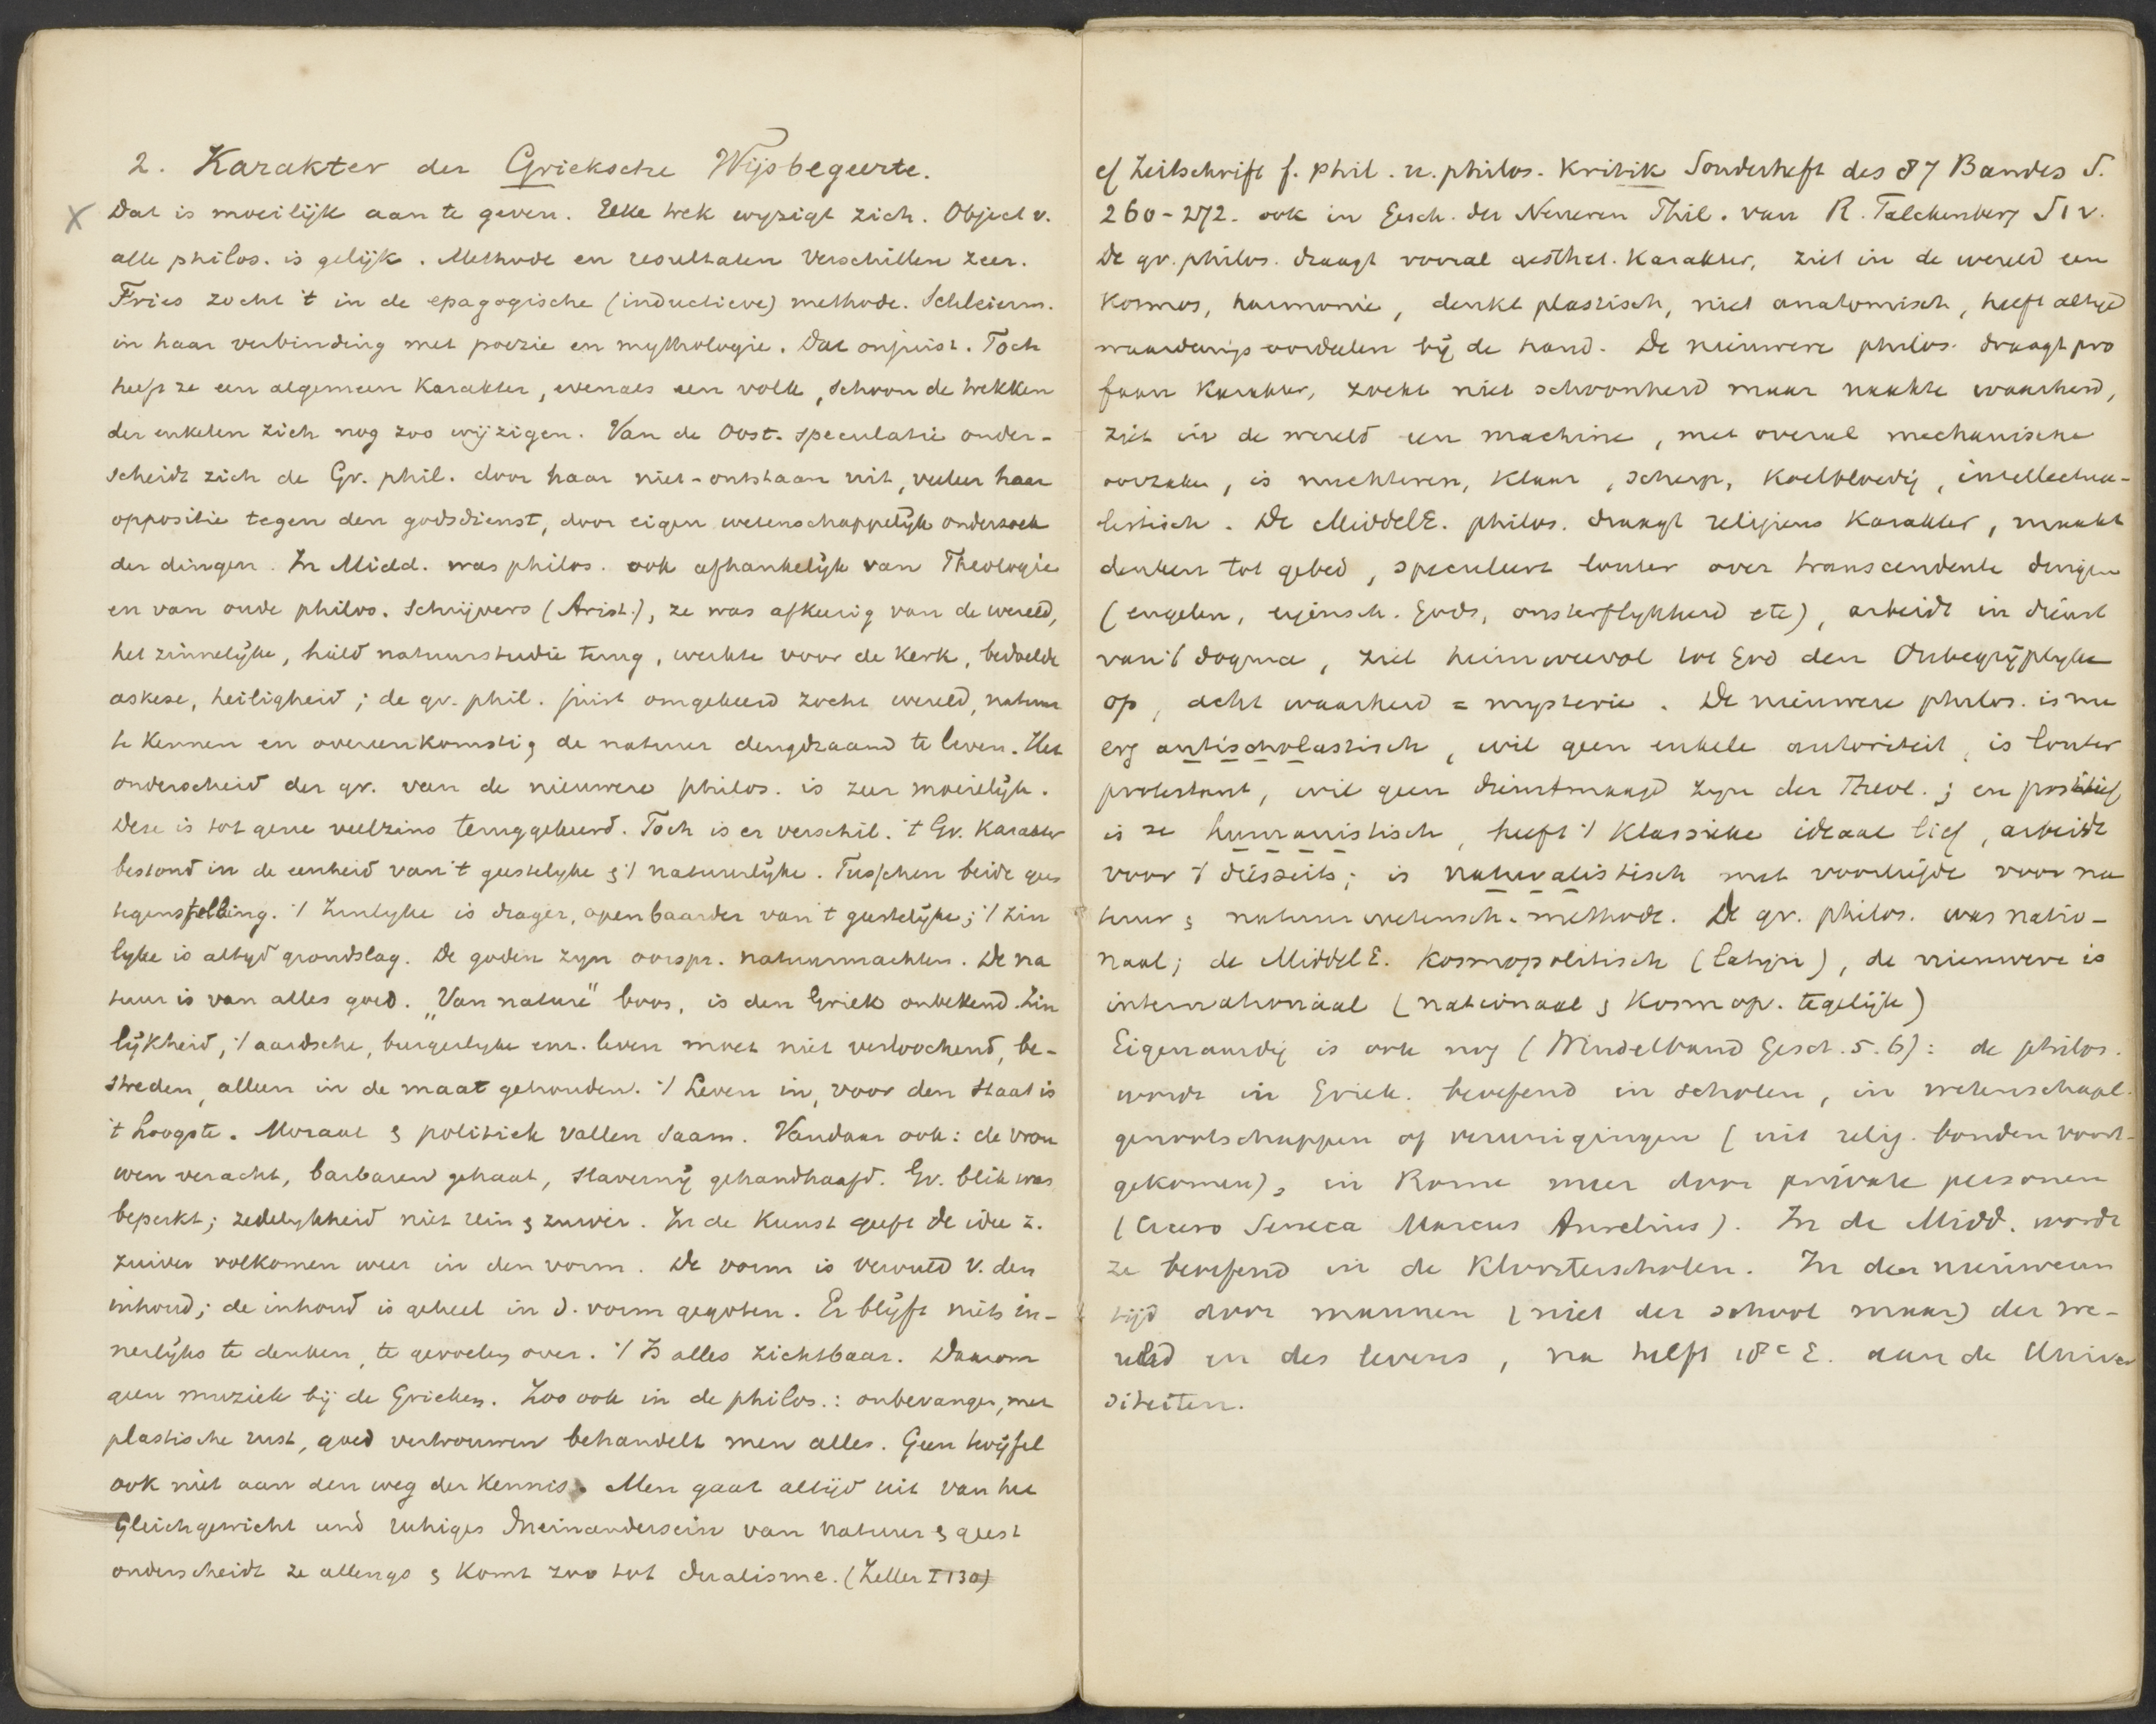 2. Karakter der Grieksche Wijsbegeerte.
X Dat is moeilijk aan te geven. Elke trek wyzigt zich. Object v.
alle philos. is gelijk. Methode en resultaten verschillen zeer.
Fries zocht 't in de epagogische (inductieve) methode. Schleierm.
in haar verbinding met poezie en mythologie. Dat onjuist. Toch
heeft ze een algemeen Karakter, evenals een volk, schoon de trekken
der enkelen zich nog zoo wijzigen. Van de Oost. speculatie onder-
scheidt zich de Gr. phil. door haar niet-ontstaan uit, veeleer haar
oppositie tegen den godsdienst, door eigen wetenschappelijk onderzoek
der dingen. In Midd. was philos. ook afhankelijk van Theologie
en van oude philos. Schrijvers (Arist.), ze was afkeerig van de wereld,
het zinnelijke, hield natuurstudie terug, werkte voor de Kerk, bedoelde
askese, heiligheid; de gr. phil. juist omgekeerd zocht wereld, natuur
te Kennen en overeenkomstig de natuur deugdzaam te leven. Het
onderscheid der gr. van de nieuwere philos. is zeer moeielijk.
Deze is tot gene veelzins teruggekeerd. Toch is er verschil. 't Gr. Karakter
bestond in de eenheid van 't geestelyke & 't natuurlijke. Tusschen beide geen
tegenstelling. 't Zinlyke is drager, openbaarder van 't geestelyke; 't zin
lyke is altyd grondslag. De goden zyn oorspr. natuurmachten. De na
tuur is van alles goed. "Van nature" boos, is den Griek onbekend. Zin
lijkheid, 't aardsche, burgerlyke enz. leven moet niet verloochend, be-
streden, alleen in de maat gehouden. 't Leven in, voor den Staat is
't hoogste. Moraal & politiek vallen saam. Vandaar ook: de vrou
wen veracht, barbaren gehaat, slavernij gehandhaafd. Gr. blik was
beperkt; zedelykheid niet rein & zuiver. In de Kunst geeft de idee z.
zuiver volkomen weer in den vorm. De vorm is vervuld v. den
inhoud; de inhoud is geheel in d. vorm gegoten. Er blijft niets in-
nerlijks te denken, te gevoelen over. 't Is alles zichtbaar. Daarom
geen muziek bij de Grieken. Zoo ook in de philos.: onbevangen, met
plastische rust, goed vertrouwen behandelt men alles. Geen twijfel
ook niet aan den weg der Kennis. Men gaat altijd uit van het
Gleichgewicht und ruhiges Ineinandersein van natuur & geest
onderscheidt ze allengs & Komt zoo tot dualisme. (Zeller I 130)
cf Zeitschrift f. phil. u. philos. Kritik Sonderheft des 87 Bandes S.
260-272. ook in Gesch. der Neueren Phil. van R. Falckenberg S 1 v.
De gr. philos. draagt vooral aesthet. Karakter, ziet in de wereld een
Kosmos, harmonie, denkt plastisch, niet anatomisch, heeft altijd
waarderingsoordeelen bij de hand. De nieuwere philos. draagt pro
faan Karakter, zoekt niet schoonheid maar naakte waarheid,
ziet in de wereld een machine, met overal mechanische
oorzaken, is nuchteren, Klaar, scherp, Koelbloedig, intellectua-
listisch. De MiddelE. philos. draagt religieus Karakter, maakt
denken tot gebed, speculeert louter over transcendente dingen
(engelen, eigensch. Gods, onsterflykheid etc), arbeidt in dienst
van 't dogma, ziet heimweevol tot God den Onbegrijplyke
op, acht waarheid = mysterie. De nieuwere philos. is nu
erg antischolastisch, wil geen enkele autoriteit, is louter
protestant, wil geen dienstmaagd zyn der Theol.; en positief
is ze humanistisch, heeft 't Klassieke ideaal lief, arbeidt
voor 't diesseits; is naturalistisch met voorliefde voor na
tuur & natuurwetensch. methode. De gr. philos. was natio-
naal; de MiddelE. Kosmopolitisch (Latijn), de nieuwere is
internationaal (nationaal & Kosmop. tegelijk)
Eigenaardig is ook nog (Windelband Gesch. 5. 6): de philos.
wordt in Griek. beoefend in scholen, in wetenschapl.
genootschappen of vereenigingen (uit relig. bonden voort-
gekomen), in Rome meer door private personen
(Cicero Seneca Marcus Aurelius). In de Midd. wordt
ze beoefend in de Kloosterscholen. In den nieuweren
tijd door mannen (niet der school maar) der we-
reld en des levens, na helft 18e E. aan de Univer
siteiten.